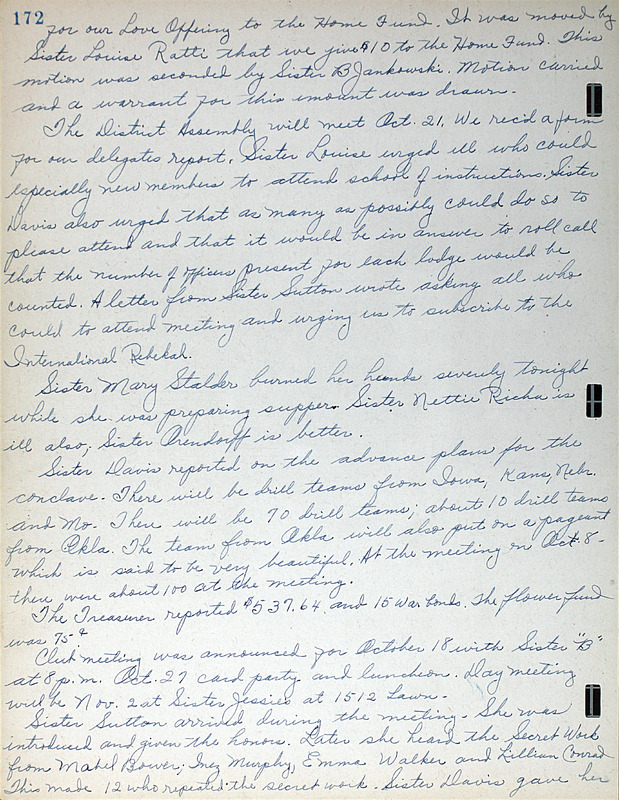 172
for our Love Offering to the Home Fund. It was moved by
Sister Louise Ratti that we give $10 to the Home Fund. This
motion was seconded by Sister B Jankowski. Motion carried
and a warrant for this amount was drawn.
The District Assembly will meet Oct. 21. We rec'd a form
for our delegates report. Sister Louise urged ill who could
especially new members to attend school of instructions. Sister
Davis also urged that as many as possibly could do so to
please attend and that it would be in answer to roll call
that the number of officers present for each lodge would be
counted. A letter from Sister Sutton wrote asking all who
could to attend meeting and urging us to subscribe to the
International Rebekah.
Sister Mary Stalder burned her hands severely tonight
while she was preparing supper. Sister Nettie Richa is
ill also; Sister Orendorff is better.
Sister Davis reported on the advance plans for the
conclave. There will be drill teams from Iowa, Kans, Nebr.
and Mo. There will be 70 drill teams; about 10 drill teams
from Okla. The team from Okla will also put on a pageant
which is said to be very beautiful. At the meeting on Oct. 8-
there were about 100 at the meeting.
The Treasurer reported $537.64 and 15 War bonds. The flower fund
was 75¢
Club meeting was announced for October 18 with Sister "B"
at 8 p.m. Oct. 27 card party and luncheon. Day meeting
will be Nov. 2 at Sister Jessie's at 1512 Lawn.
Sister Sutton arrived during the meeting. She was
introduced and given the honors. Later she heard the Secret Work
from Mabel Bower, Inez Murphy, Emma Walker and Lillian Conrad
This made 12 who repeated the secret work. Sister Davis gave her